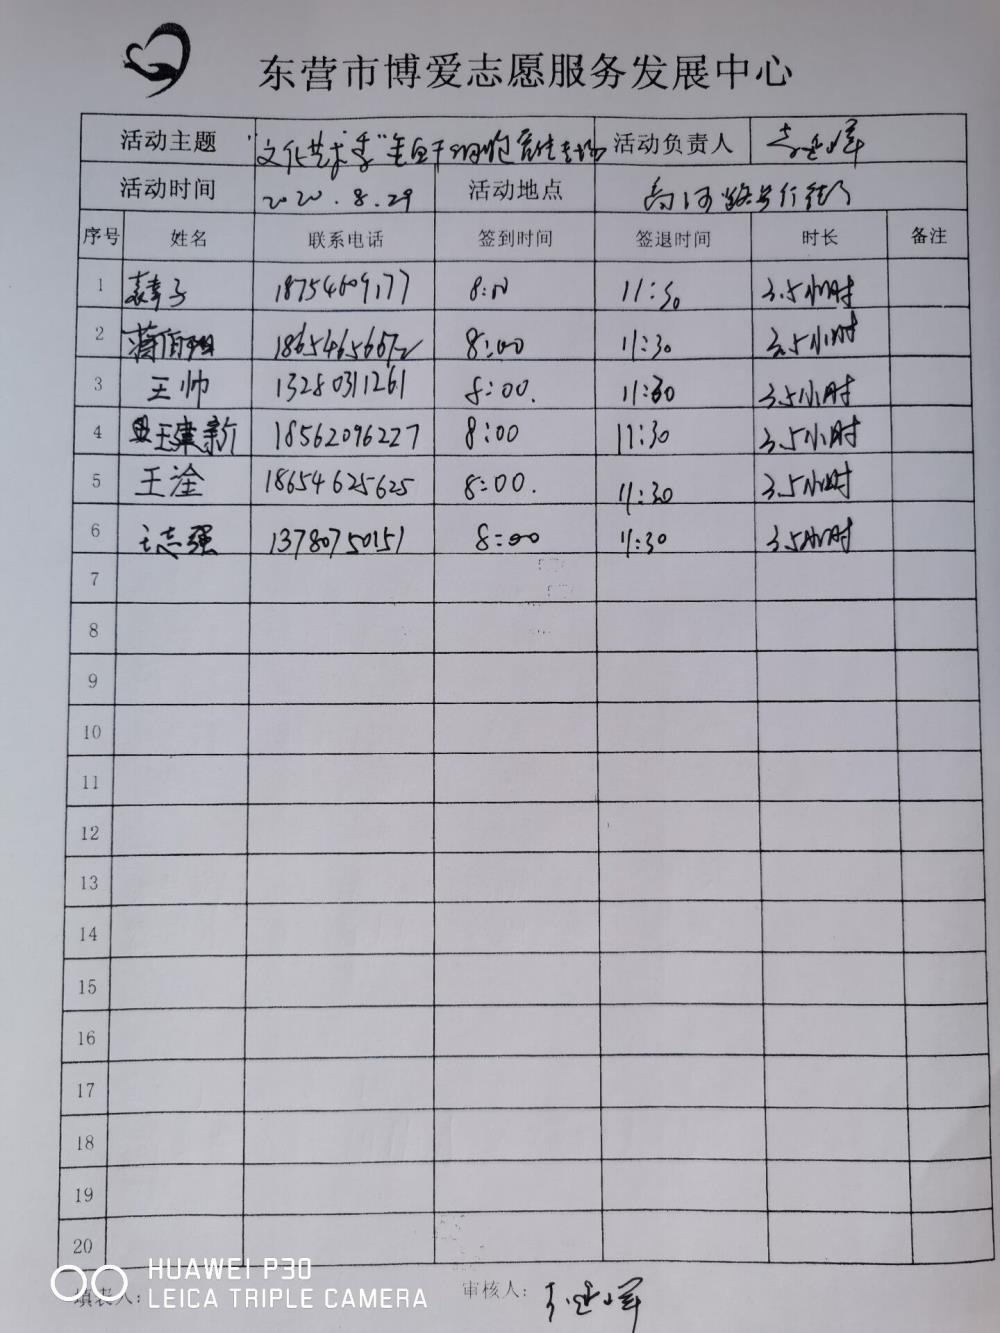 东营市博爱志愿服务发展中心
活动主题 "文化艺术季" 宣传专场 活动负责人
活动时间 2020.8.29 活动地点 步行街
序号 姓名 联系电话 签到时间 签退时间 时长 备注
1 袁幸子 18754609177 8:00 11:30 3.5小时
2 8:00 11:30 3.5小时
3 王帅 13280311261 8:00. 11:30 3.5小时
4 王建新 18562096227 8:00 11:30 3.5小时
5 王淦 18654625625 8:00. 11:30 3.5小时
6 王志强 13780750151 8:00 11:30 3.5小时
7
8
9
10
11
12
13
14
15
16
17
18
19
20
填表人: 审核人:
HUAWEI P30
LEICA TRIPLE CAMERA